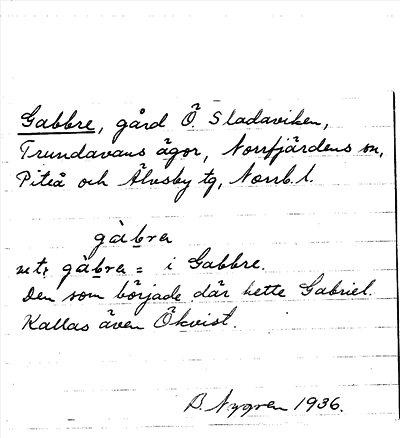 Gabbre, gård Ö. Sladaviken,
Trundavans ägor, Norrfjärdens sn,
Piteå och Älvsby tg, Norrb. l.
gàbra
ne t. gàbra = i Gabbre.
Den som började där hette Gabriel.
Kallas även Ökvist.
B. Nygren 1936.